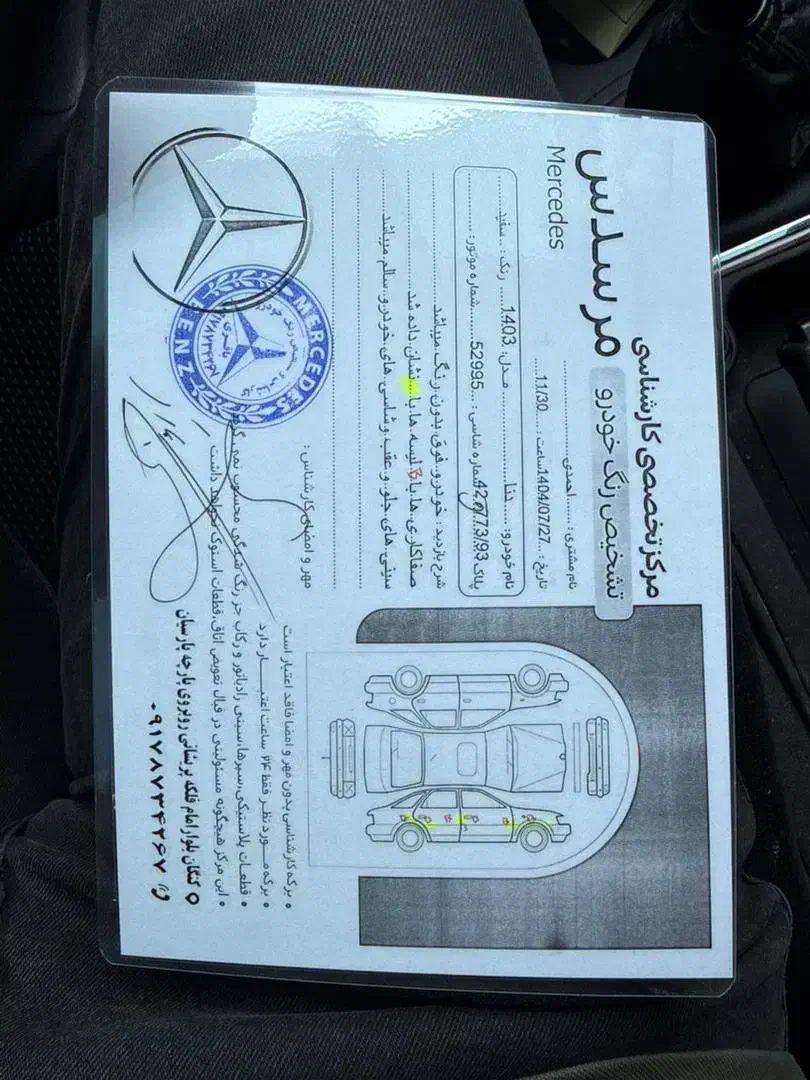 مرکز تخصصی کارشناسی
مرسدس تشخیص رنگ خودرو
Mercedes
نام مشتری: احمدی
تاریخ: 1404/07/27 ساعت: 11/30
نام خودرو: دنا مدل: 1403 رنگ: سفید
پلاک 93/773 42 شماره شاسی: 52995 شماره موتور:
شرح بازدید: خودرو فوق بدون رنگ میباشد
صافکاری ها با لیسه ها با نشان داده شد
سینی های جلو و عقب و شاسی های خودرو سالم میباشد
مهر و امضای کارشناس:
MERCEDES
BENZ
• برگه کارشناسی بدون مهر و امضا فاقد اعتبار است
• برگه مورد نظر فقط ۲۴ ساعت اعتبار دارد
• قطعات پلاستیکی، سپرها، سینی رادیاتور و رکاب جز رنگ شدگی محسوب نمی گردد
• این مرکز هیچگونه مسئولیتی در قبال تعویض اتاق، قطعات استوک نخواهد داشت
کنگان بلوار امام فلکه بریشانی روبروی پارچه پارسیان
۰۹۱۷۸۷۳۴۲۶۷